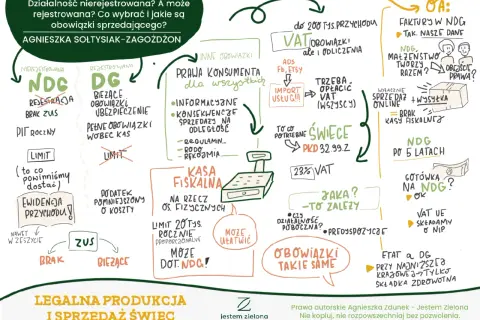 Działalność nierejestrowana? A może
rejestrowana? Co wybrać i jakie są
obowiązki sprzedającego?
AGNIESZKA SOŁTYSIAK-ZAGOŻDŻON
NIEREJESTROWANA
NDG
REJESTRACJA
BRAK ZUS
PIT ROCZNY
LIMIT
(to co
powinniśmy
dostać)
EWIDENCJA
PRZYCHODU!
NAWET
W ZESZYCIE
ZUS
BRAK
BIEŻĄCE
REJESTROWANA
DG
BIEŻĄCE
OBOWIĄZKI
UBEZPIECZENIE
PEŁNE OBOWIĄZKI
WOBEC KAS
LIMIT
PODATEK
POMNIEJSZONY
O KOSZTY
INNE OBOWIĄZKI
PRAWA KONSUMENTA
dla wszystkich
INFORMACYJNE
KONSEKWENCJE
SPRZEDAŻY NA
ODLEGŁOŚĆ
REGULAMIN
RODO
RĘKOJMIA
KASA
FISKALNA
NA RZECZ
OS FIZYCZNYCH
LIMIT 20 TYS.
ROCZNIE
PROPORCJONALNIE
MOŻE
DOT. NDG!
MOŻE
UŁATWIĆ
do 200 TYS. PRZYCHODU
VAT
OBOWIĄZKI
ale i ODLICZENIA
ADS
FB, ETSY
IMPORT
USŁUGI
TRZEBA
OPŁACIĆ
VAT
(WSZYSCY)
TO CO
POTRZEBNE
ŚWIECE
PKD 32.99.Z
23% VAT
JAKA?
-TO ZALEŻY
CZY
DZIAŁALNOŚĆ
POBOCZNA?
PREDYSPOZYCJE
OBOWIĄZKI
TAKIE SAME
Q&A:
FAKTURY W NDG
TAK. NASZE DANE
NDG,
MAŁŻEŃSTWO
TWORZY
RAZEM?
WYŁĄCZNIE
SPRZEDAŻ
ONLINE
+WYSYŁKA
BRAK
KASY FISKALNEJ
NDG
PO 5 LATACH
GOTÓWKĄ
NA NDG?
OK
VAT UE
SKŁADAMY
O NIP
ETAT a DG
PRZY NAJNIŻSZEJ
KRAJOWEJ-TYLKO
SKŁADKA ZDROWOTNA
LEGALNA PRODUKCJA
I SPRZEDAŻ ŚWIEC
Jestem zielona
Prawa autorskie Agnieszka Zdunek - Jestem Zielona
Nie kopiuj, nie rozpowszechniaj bez pozwolenia.